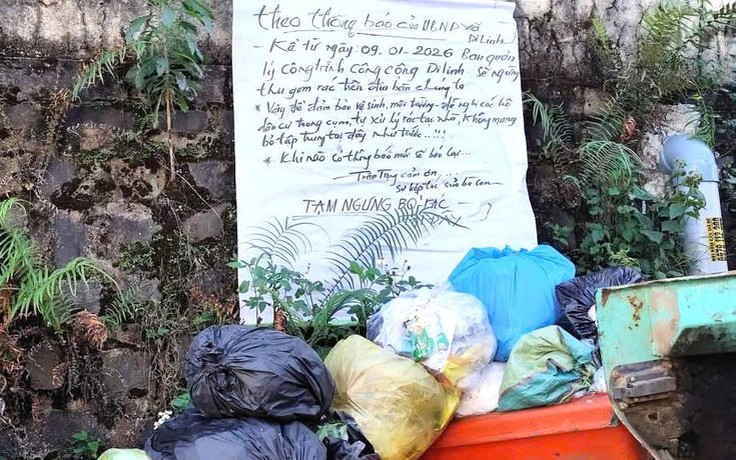 theo thông báo của UBND xã
Di Linh
- Kể từ ngày: 09.01-2026 Ban quản
lý công trình công cộng Di Linh sẽ ngừng
thu gom rác trên địa bàn chúng ta
* Vậy để đảm bảo vệ sinh, môi trường. đề nghị các hộ
dân cư trong cụm, tự xử lý rác tại nhà, không mang
bỏ tập trung tại đây như trước...!!!
* Khi nào có thông báo mới sẽ báo lại...
Trân Trọng cảm ơn,
Sự hợp tác của bà con
TẠM NGƯNG BỎ RÁC
TẠI ĐÂY